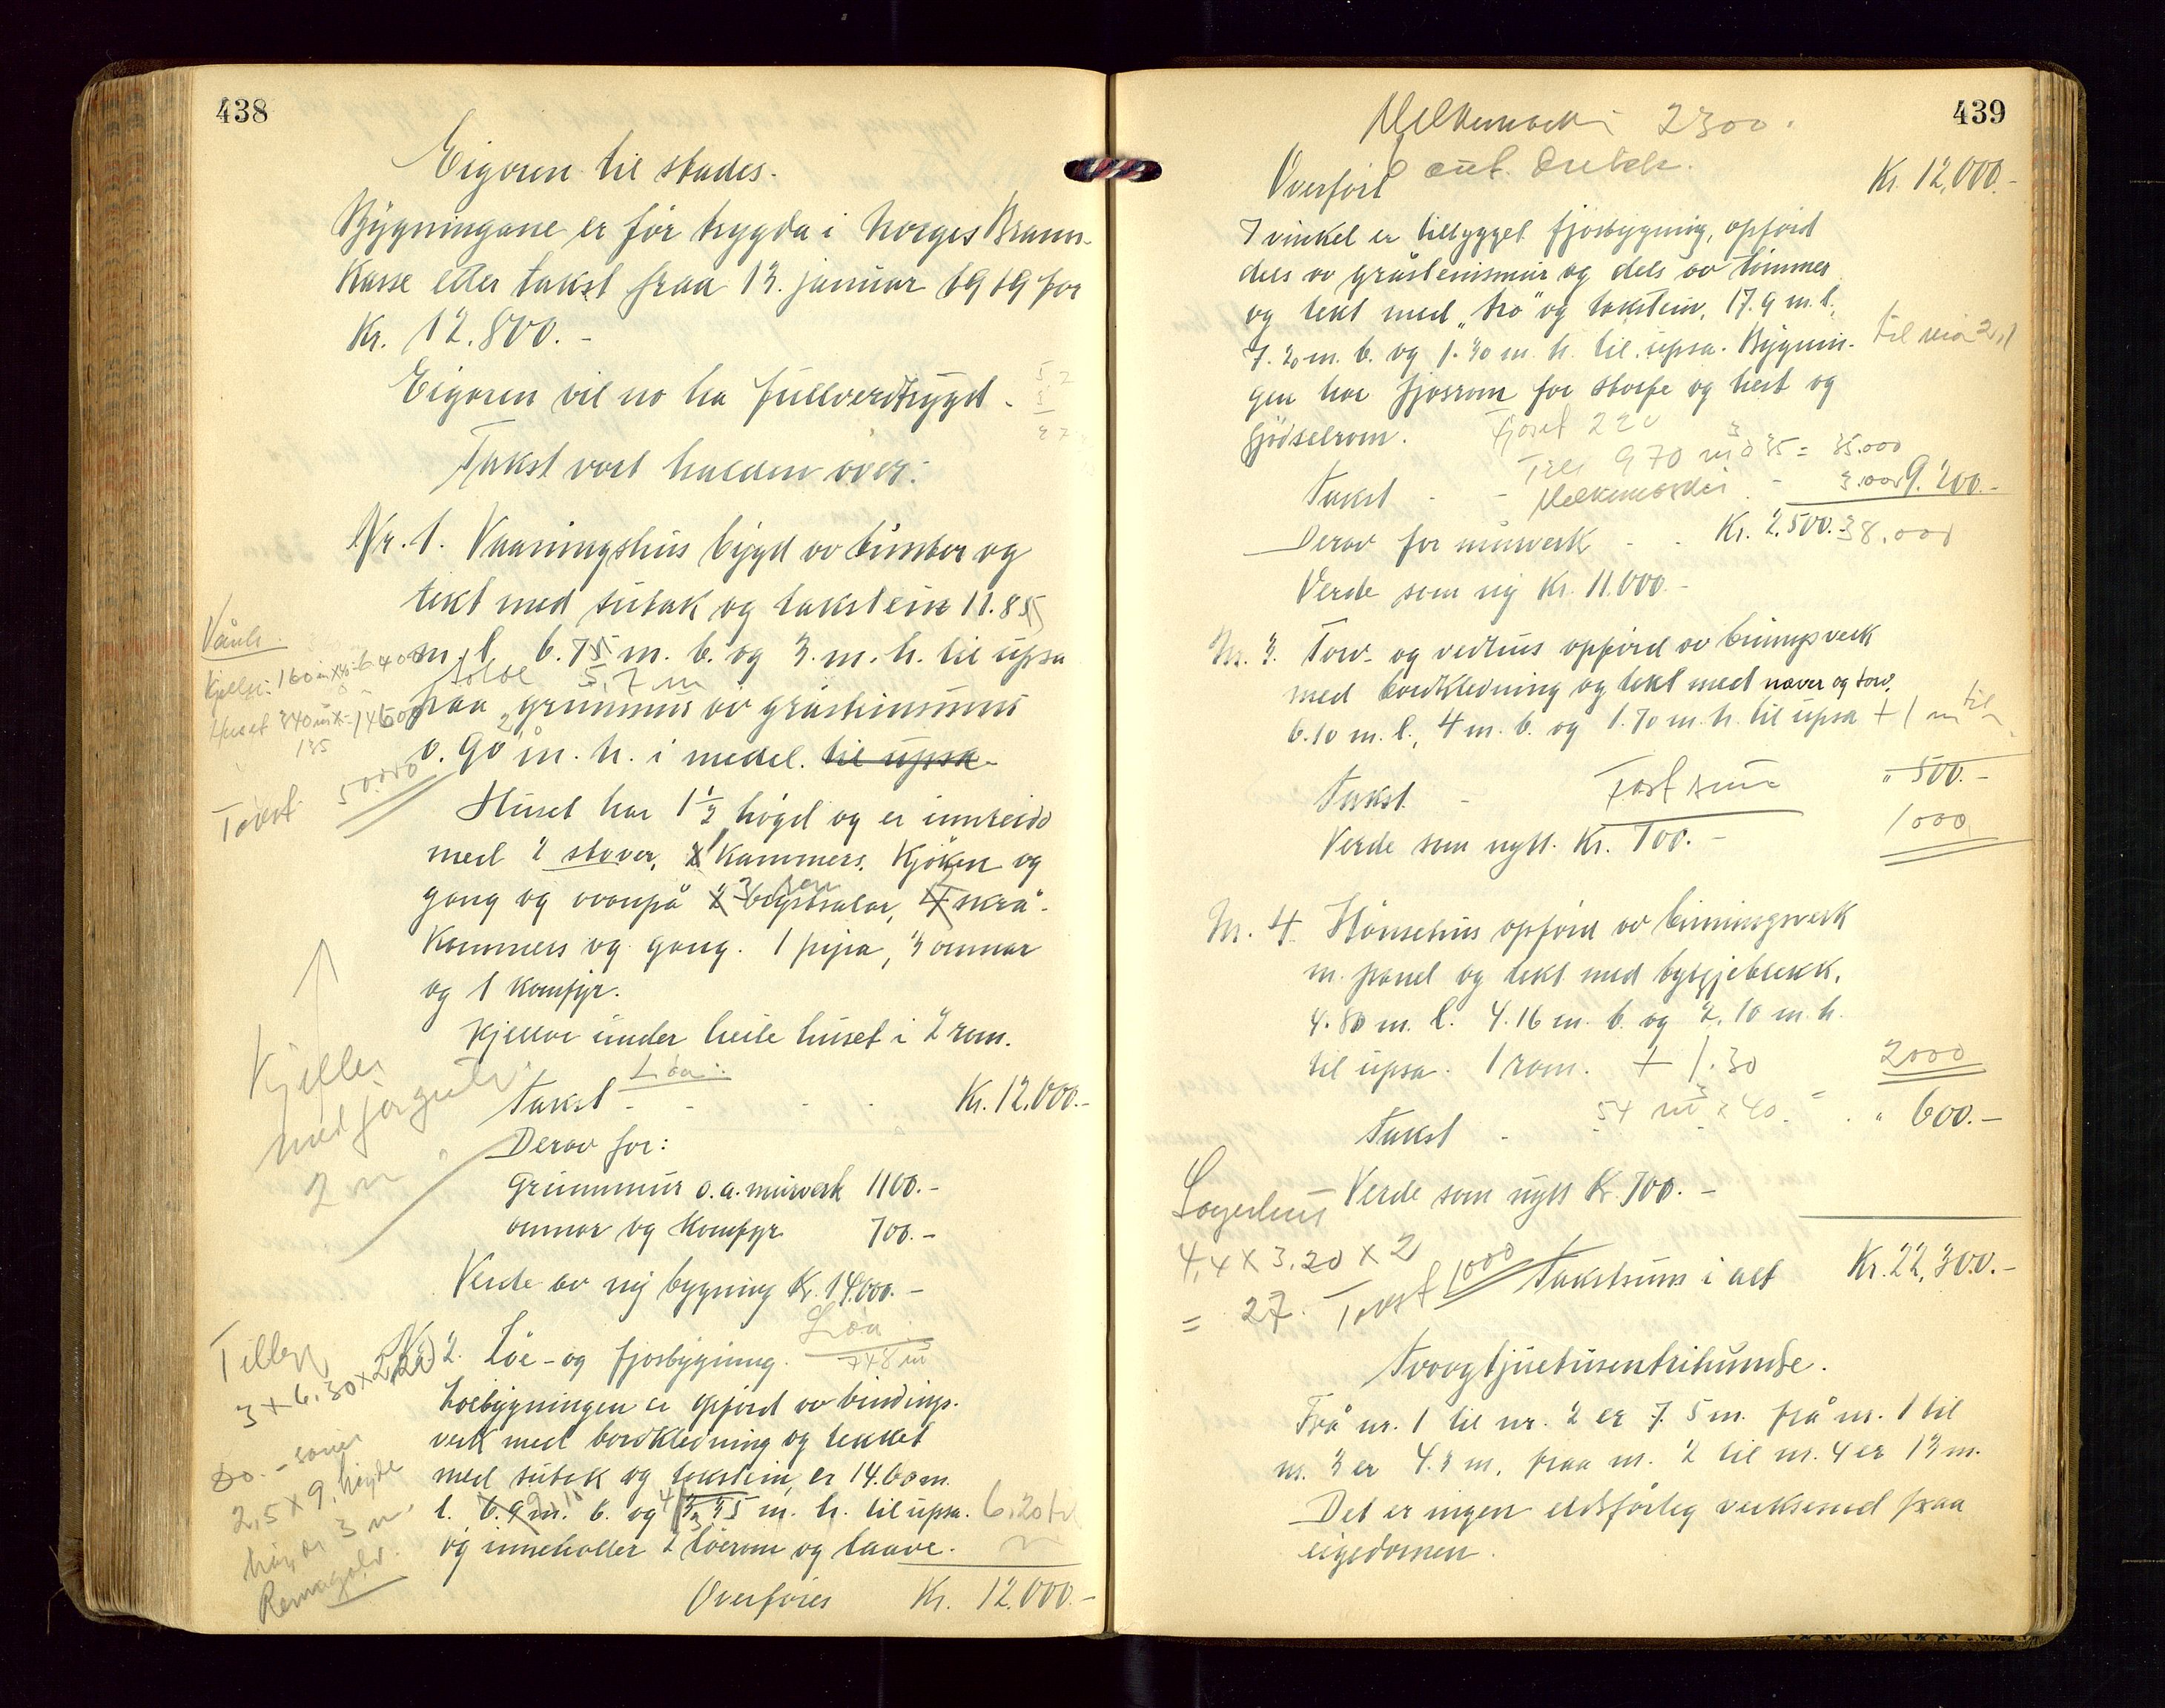 438
Eigaren til stades.
Bygningane er før trygda i Norges Brann-
kasse etter takst fraa 13. januar 1919 for
Kr. 12.800.-
Eigaren vil no ha fullverdtrygd.
Takst vart halden over:
Nr. 1. Vaaningshus bygd av timber og
tekt med sutak og takstein 11.85
m. l. 6.75 m. b. og 3. m. h. til upsa
5,7 m
paa grunnmur av gråsteinsmur
0.90 m. h. i medel. til upsa
Huset har 1 1/2 høgd og er innreidd
med 2 stover, 1 kammers, kjøken og
gang og ovanpå 2 3 skrå-
kammers og gang. 1 pipa, 3 omnar
og 1 komfyr.
Kjellar under heile huset i 2 rom.
Løa:
Takst - - - - Kr. 12.000.-
Derav for:
Grunnmur o.a. murverk 1100.-
omnar og komfyr 700.-
Verde av ny bygning Kr. 14.000.-
Løa
748 m3
Nr. 2. Løe- og fjosbygning.
Løebygningen er opførd av bindings-
verk med bordkledning og tekket
med sutak og takstein, er 14.60 m.
l. 6.9 m. b. og 3.35 m. h. til upsa. 6.20 til
og inneholder 2 løerom og laave.
Overføres Kr. 12.000.-
Vånh.
Kjeller: 160
Huset 340
135
Takst 50.000
Kjeller
2 m
Tillegg
3 x 6.30 x 2,20
Do. -
2,5 x 9, høyde
3 m.
439
Melkemaskin 2300.
Overført Kr. 12,000.-
I vinkel er tilbygget fjosbygning, opførd
dels av gråsteinsmur og dels av timmer
og tekt med "tro" og takstein, 17.9 m. l.
7.20 m. b. og 1.30 m. h. til upsa. Bygnin-
til 2,1
gen har fjosrom for storfe og hest og
gjødselrom. Fjøset 220
970 m3 a 35 = 35.000
Melkemaskin - 3.000
Takst - - 9.200.-
Derav for murverk - - Kr. 2.500.- 38.000
Verde som ny Kr. 11.000.-
Nr. 3. Torv- og vedhus opførd av bindingsverk
med bordkledning og tekt med næver og torv.
6.10 m. l., 4 m. b. og 1.70 m. h. til upsa + 1 m til
Takst - Fast sum " 500.-
1000
Verde som nytt. Kr. 700.-
Nr. 4. Hønsehus opførd av bindingsverk
m. panel og tekt med bylgjeblekk.
4.80 m. l. 4.16 m. b. og 2.10 m. h.
til upsa. 1 rom. + 1.30 2000
54 m3 x 40. =
Takst - - - " 600.-
Verde som nytt Kr. 700.-
Lagerhus
4,4 x 3,20 x 2
= 27. Takst 1000
Takstsum i alt Kr. 22,300.-
Tvoogtjuetusentrihundre.
Frå nr. 1 til nr. 2 er 7.5 m. frå nr. 1 til
nr. 3 er 4.3 m, fraa nr. 2 til nr. 4 er 13 m.
Det er ingen eldsfårleg verksemd paa
eigedomen.